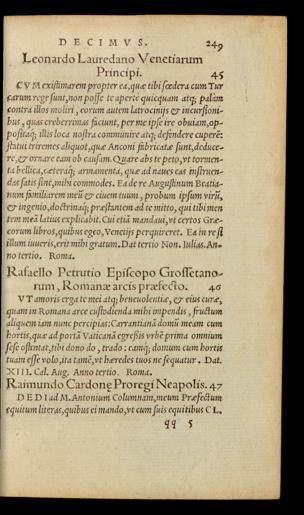 DECIMVS. 249
Leonardo Lauredano Venetiarum
Principi. 45
CVM existimarem propter ea, quæ tibi fœdera cum Tur
carum rege sunt, non posse te aperte quicquam atq; palàm
contra illos moliri, eorum autem latrocinijs & incursioni-
bus, quas creberrimas faciunt, per me ipse ire obuiam, op-
positaq; illis loca nostra communire atq; defendere cuperē:
statui triremes aliquot, quæ Anconi fabricatæ sunt, deduce-
re, & ornare eam ob causam. Quare abs te peto, vt tormen-
ta bellica, cæteraq; armamenta, quæ ad naues eas instruen-
das satis sint, mihi commodes. Ea de re Augustinum Beatia-
num familiarem meū & ciuem tuum, probum ipsum virū,
& ingenio, doctrinaq; præstantem ad te mitto, qui tibi men
tem meā latius explicabit. Cui etiā mandaui, vt certos Græ-
corum libros, quibus egeo, Venetijs perquireret. Ea in re si
illum iuueris, erit mihi gratum. Dat tertio Non. Iulias. An-
no tertio. Roma.
Rafaello Petrutio Episcopo Grossetano-
rum, Romanæ arcis præfecto. 46
VT amoris erga te mei atq; beneuolentiæ, & eius curæ,
quam in Romana arce custodienda mihi impendis, fructum
aliquem iam nunc percipias: Carrantianā domū meam cum
hortis, quæ ad portā Vaticanā egressis vrbē prima omnium
sese ostentat, tibi dono do, trado: eamq; domum cum hortis
tuam esse volo, ita tamē, vt hæredes tuos ne sequatur. Dat.
XIII. Cal. Aug. Anno tertio. Roma.
Raimundo Cardonę Proregi Neapolis. 47
DEDI ad M. Antonium Columnam, meum Præfectum
equitum literas, quibus ei mando, vt cum suis equitibus CL.
qq 5